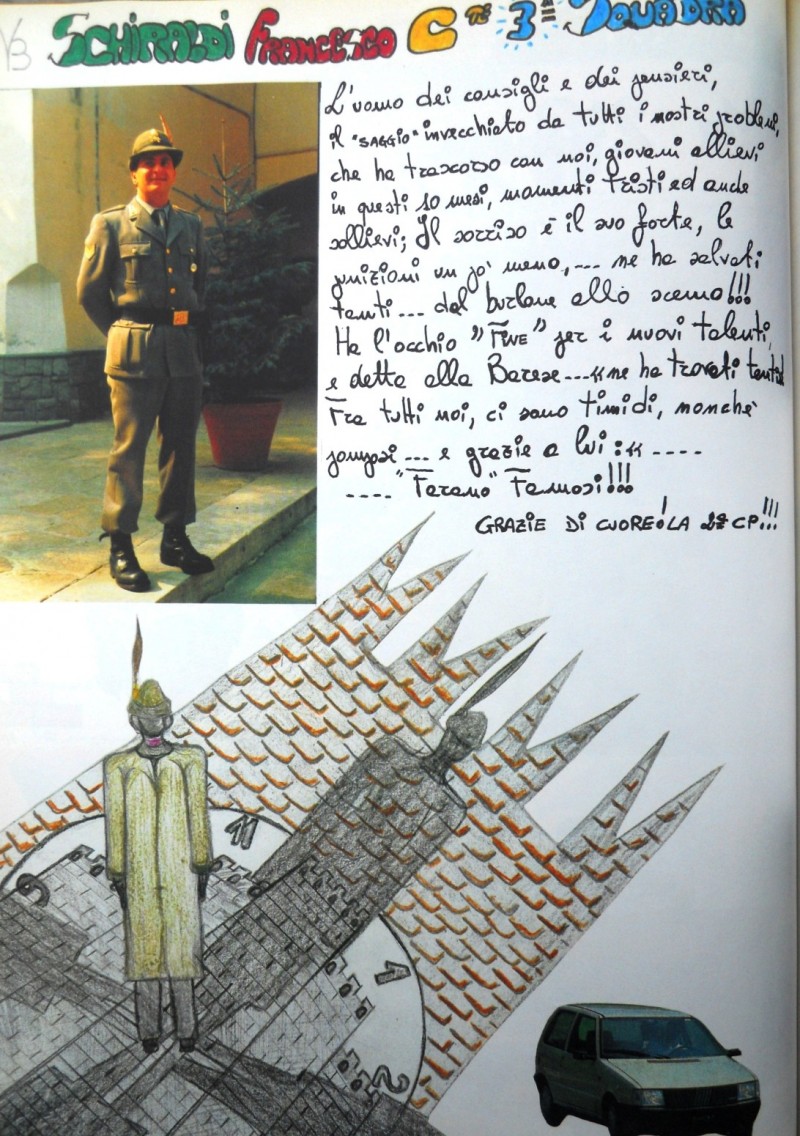 V3
SCHIRALDI FRANCESCO C te 3ª SQUADRA
L'uomo dei consigli e dei pensieri,
il "SAGGIO" invecchiato da tutti i nostri problemi,
che ha trascorso con noi, giovani allievi
in questi 10 mesi, momenti tristi ed anche
sollievi; Il sorriso è il suo forte, le
punizioni un po' meno,... ne ha salvati
tanti... dal burlone allo scemo!!!
Ha l'occhio "FINE" per i nuovi talenti,
e detta alla Barese... "ne ha trovati tanti"
Fra tutti noi, ci sono timidi, nonchè
pomposi... e grazie a lui :" ....
.... "Faremo" Famosi!!!
GRAZIE DI CUORE! LA 2ª CP!!!
9
11
1
2